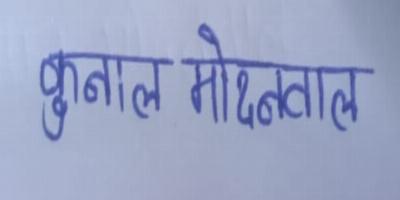 कुनाल मोदनवाल